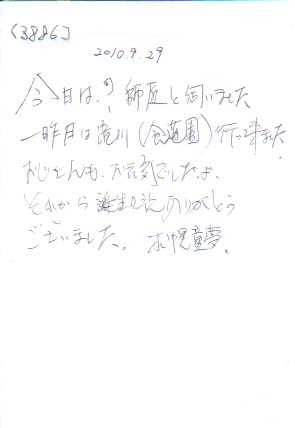 (3886)
2010.9.29
今日は、師匠と伺いました
一昨日は 滝川()行って来ました
おじさんも、お元気でしたよ、
それから 誕生ありがとう
ございました。札幌童夢、